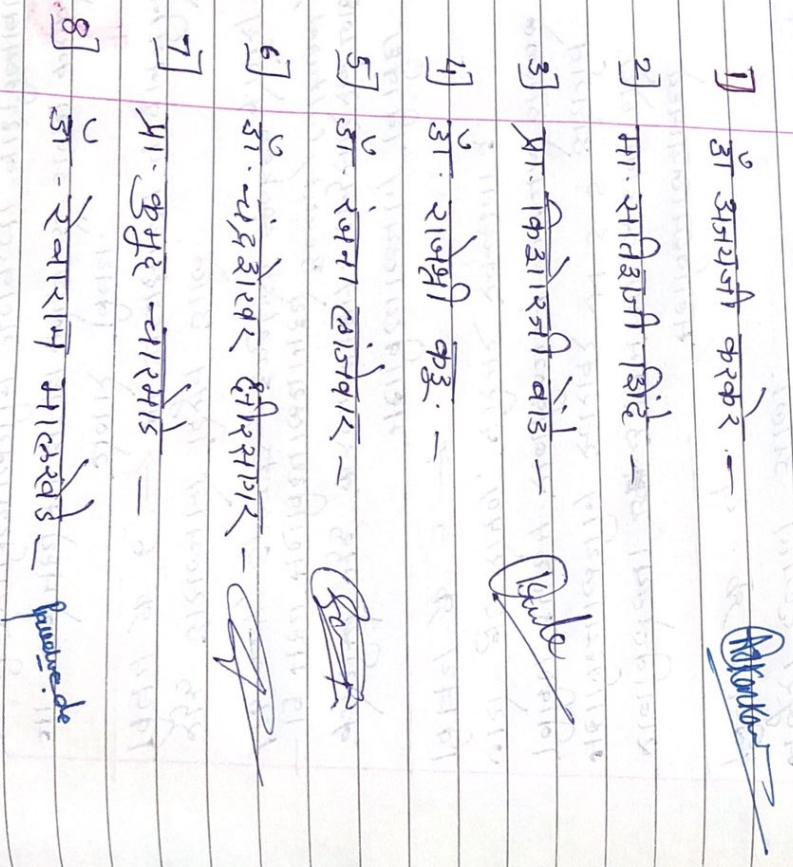 1] डॉ अजयजी करकरे. —
2] मा. सतिशजी शिंदे —
3] प्रा. किशोरजी वाडे —
4] डॉ. राजेश्री कद्रु. —
5] डॉ. रंजना लांजेवार —
6] डॉ. चंद्रशेखर क्षीरसागर —
7] प्रा. कुमुद चारमोडे —
8] डॉ. रेवाराम मालखेडे —